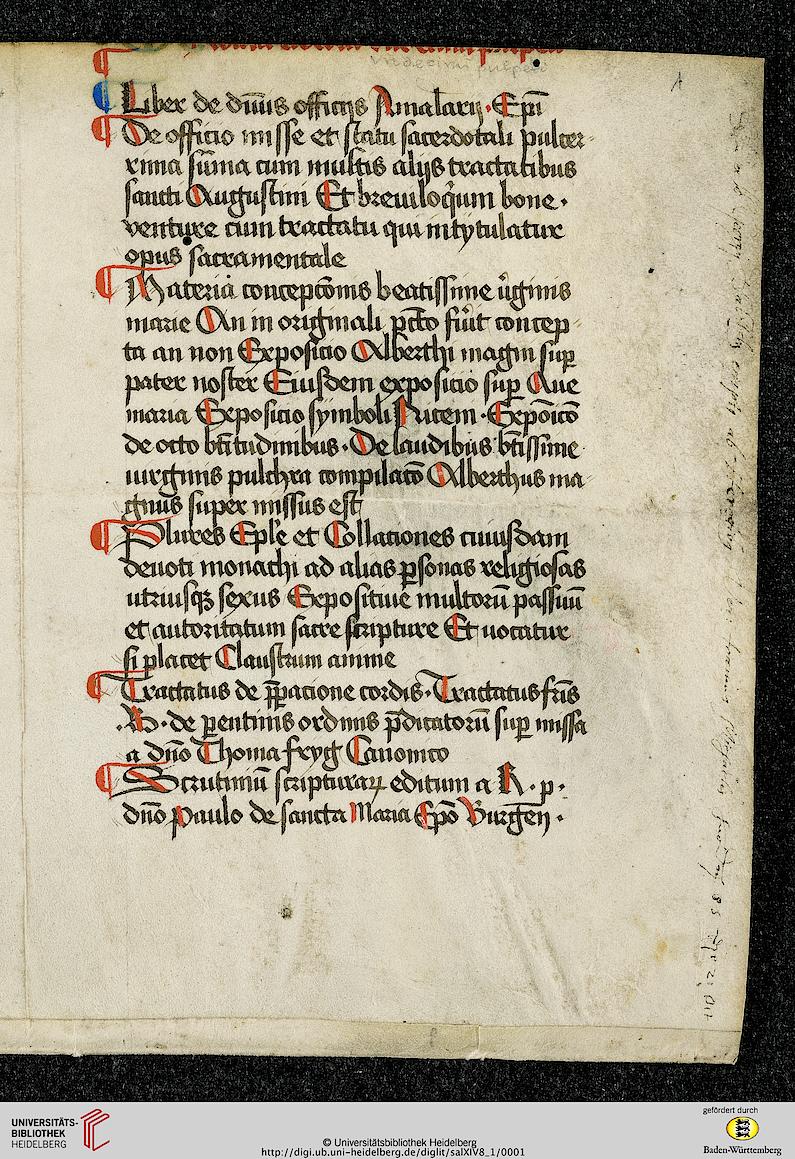 Liber de diuis officijs Amalarij · Epi
De officio misse et statu sacerdotali pulcer
rima sūma cum multis alijs tractatibus
sancti Augustini Et breuiloqum bone ·
venture cum tractatu qui intytulatur
opus sacramentale
Materia concepcōnis beatissime u̇ginis
marie An in originali pctō fuit concep
ta an non Exposicio Alberthi magni sup̱
pater noster Eiusdem exposicio sup̱ Aue
maria Exposicio symboli Autem · Expoicō
de octo btītudinibus · De laudibus btīssime
uirginis pulchra compilacō Alberthus ma
gnus super missus est
Plures Eplē et Collationes cuiusdam
deuoti monachi ad alias p̱sonas religiosas
utriusqꝫ sexus Expositiue multorū passuū
et autoritatum sacre scripture Et uocatur
si placet Claustrum anime
Tractatus de pp̄acione cordis · Tractatus fr̄is
· de p̱entinis ordinis p̄dicatorū sup̱ missa
a dn̄o Thoma fryg Canonico
Scrutiniū scripturaꝝ editum a R · p ·
dn̄o Paulo de sancta Maria Ep̄o Burgen̄ ·
UNIVERSITÄTS-
BIBLIOTHEK
HEIDELBERG
© Universitätsbibliothek Heidelberg
http://digi.ub.uni-heidelberg.de/diglit/salXIV8_1/0001
gefördert durch
Baden-Württemberg